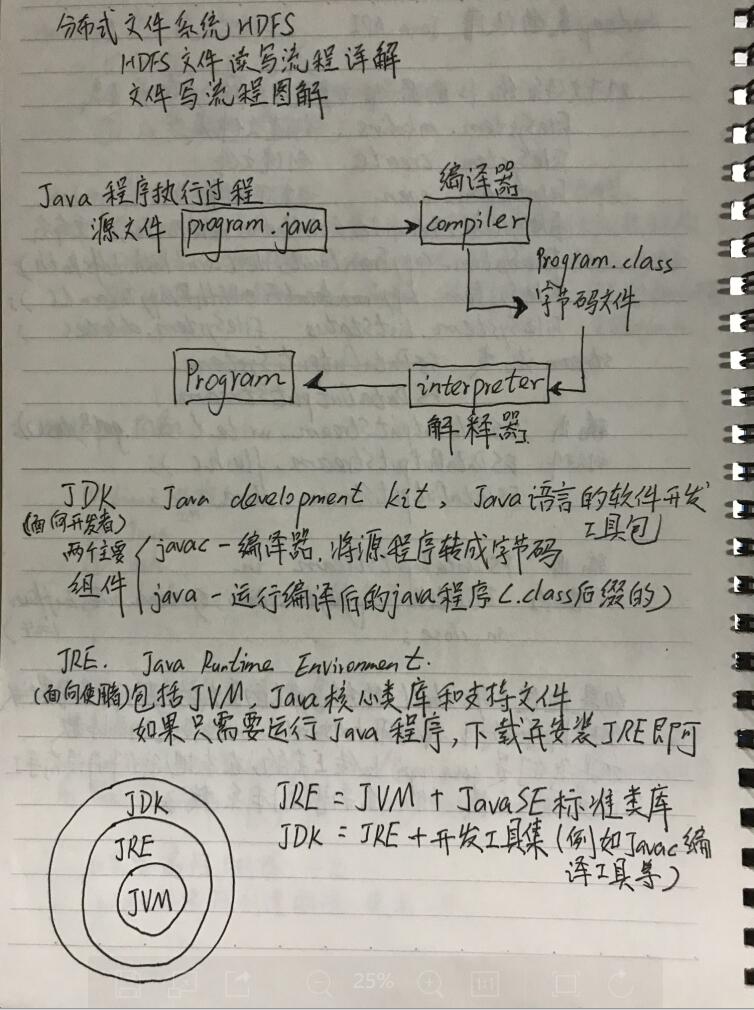 分布式文件系统HDFS
HDFS文件读写流程详解
文件写流程图解
Java 程序执行过程
编译器
源文件 program.java
compiler
Program.class
字节码文件
Program
interpreter
解释器
JDK Java development kit, Java语言的软件开发
工具包
(面向开发者)
两个主要
组件
javac - 编译器, 将源程序转成字节码
java - 运行编译后的java程序(.class后缀的)
JRE. Java Runtime Environment.
(面向使用者) 包括JVM, Java核心类库和支持文件
如果只需要运行 Java 程序, 下载并安装JRE即可
JDK
JRE
JVM
JRE = JVM + JavaSE标准类库
JDK = JRE + 开发工具集 (例如Javac编
译工具等)
25%
1:1